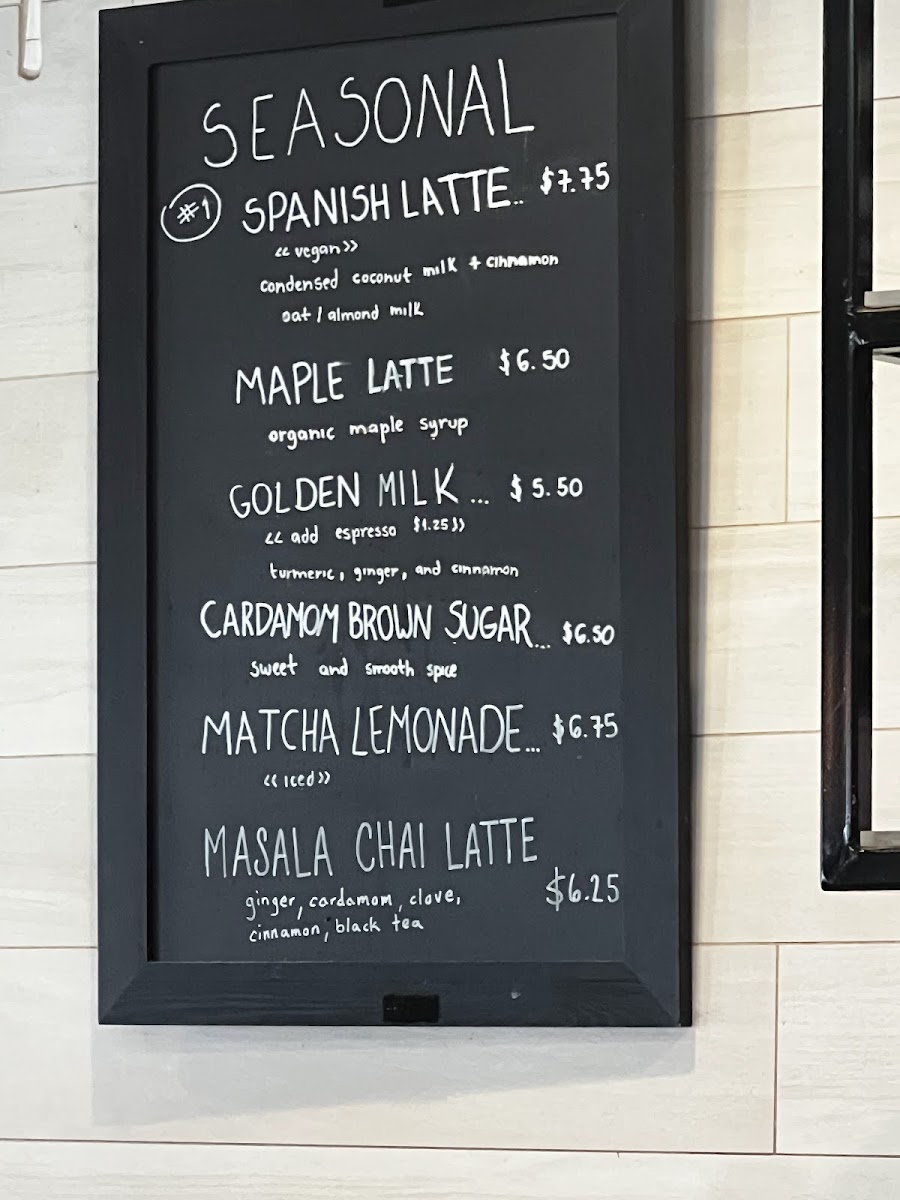 SEASONAL
#1 SPANISH LATTE.. $7.75
<< vegan >>
condensed coconut milk + cinnamon
oat / almond milk
MAPLE LATTE $6.50
organic maple syrup
GOLDEN MILK ... $5.50
<< add espresso $1.25 >>
turmeric, ginger, and cinnamon
CARDAMOM BROWN SUGAR... $6.50
sweet and smooth spice
MATCHA LEMONADE... $6.75
<< iced >>
MASALA CHAI LATTE
$6.25
ginger, cardamom, clove,
cinnamon, black tea